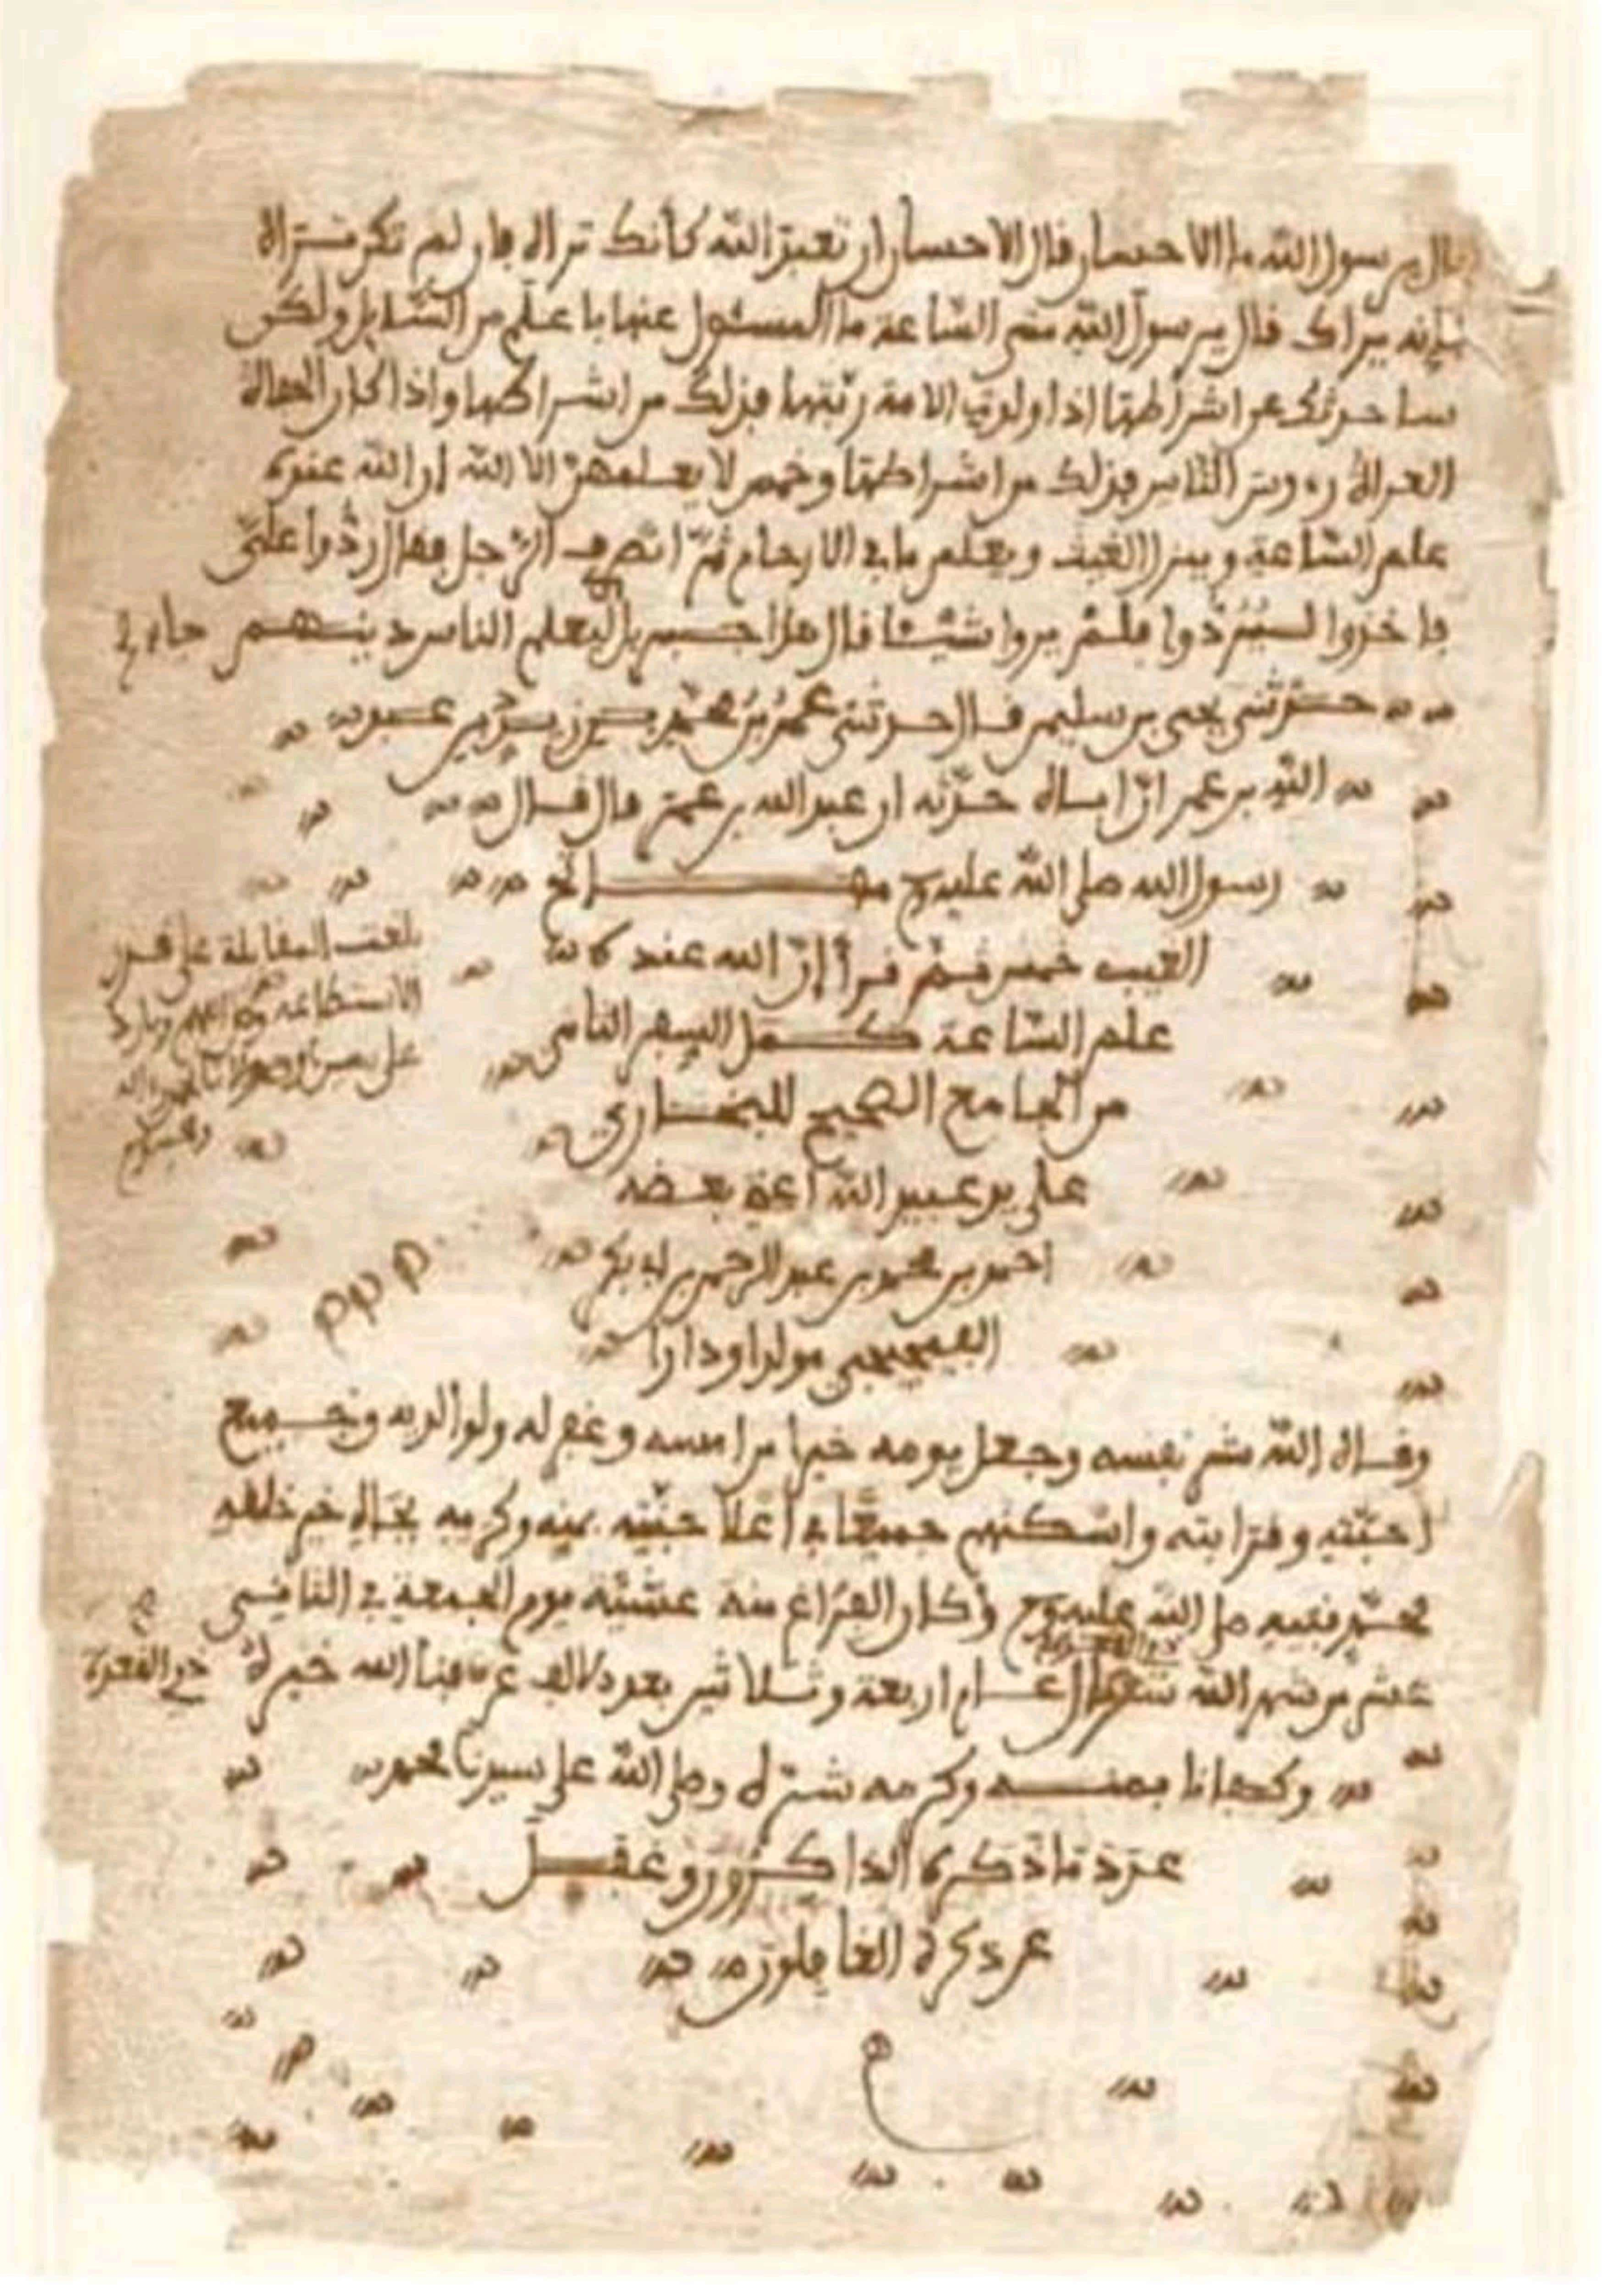 قال يرسول الله ما الاحسان قال الاحسان ان تعبد الله كأنك تراه فان لم تكن تراه
فإنه يراك قال يرسول الله متى الساعة ما المسئول عنها باعلم من السايل ولكن
ساحدثك عن اشراطها اذا ولدت الامة ربتها فذلك من اشراطها واذا كان الحفاة
العراة رءوس الناس فذلك من اشراطها وخمس لا يعلمهن الا الله ان الله عنده
علم الساعة وينزل الغيث ويعلم ما في الارحام ثم انصرف الرجل فقال ردوا علي
فاخذوا ليردوا فلم يروا شيئا فقال هذا جبريل ليعلم الناس دينهم
حدثني يحيى بن سليمن قال حدثني عمر بن محمد بن زيد بن عبد
الله بن عمر ان اباه حدثه ان عبد الله بن عمر قال قال
رسول الله صلى الله عليه مفاتح
الغيب خمس ثم قرأ ان الله عنده
علم الساعة كمل السفر الثامن
من الجامع الصحيح للبخاري
علي بن عبيد الله
احمد بن محمد بن عبد الرحمن بن ابي بكر
الفجيجي مولدا ودارا
وقاه الله شر نفسه وجعل يومه خيرا من امسه وغفر له ولوالديه ولجميع
احبته وقرابته واسكنهم جميعا في اعلا جنته بمنه وكرمه بجاه خير خلقه
محمد نبيه صلى الله عليه وكان الفراغ منه عشية يوم الجمعة في الثاني
عشر من شهر الله عام اربعة وثلاثين بعد الالف عرفنا الله خيره
ذي القعدة
وكفانا بمنه وكرمه شره وصلى الله على سيدنا محمد
عدد ما ذكره الذاكرون وغفل
عن ذكره الغافلون
بلغت المقابلة على قدر
الاستطاعة